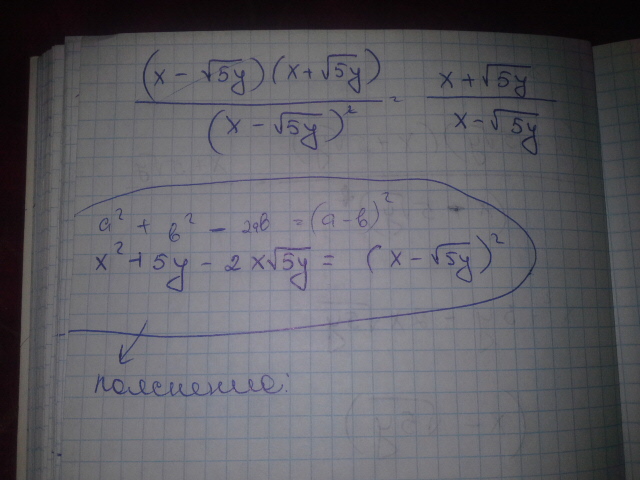 (x - √5y)(x + √5y) / (x - √5y)² = x + √5y / x - √5y
a² + b² - 2ab = (a - b)²
x² + 5y - 2x√5y = (x - √5y)²
пояснение: